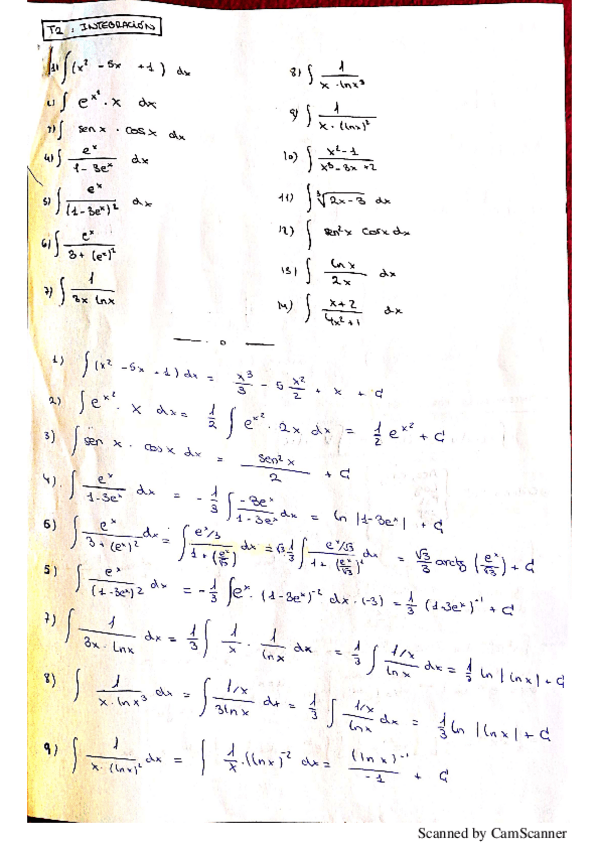 T2: INTEGRACIÓN
1) ∫(x² - 5x + 1) dx
2) ∫ e^(x²) · x dx
3) ∫ sen x · cos x dx
4) ∫ e^x / (1 - 3e^x) dx
5) ∫ e^x / (1 - 3e^x)² dx
6) ∫ e^x / (3 + (e^x)²)
7) ∫ 1 / (3x · lnx)
8) ∫ 1 / (x · lnx³)
9) ∫ 1 / (x · (lnx)²)
10) ∫ (x² - 1) / (x³ - 3x + 2)
11) ∫ ³√(2x - 3) dx
12) ∫ sen²x cosx dx
13) ∫ ln x / 2x dx
14) ∫ (x + 2) / (4x² + 1) dx
— · o —
1) ∫(x² - 5x + 1) dx = x³/3 - 5 x²/2 + x + C
2) ∫ e^(x²) · x dx = 1/2 ∫ e^(x²) · 2x dx = 1/2 e^(x²) + C
3) ∫ sen x · cosx dx = sen²x / 2 + C
4) ∫ e^x / (1 - 3e^x) dx = - 1/3 ∫ -3e^x / (1 - 3e^x) dx = ln |1 - 3e^x| + C
6) ∫ e^x / (3 + (e^x)²) dx = ∫ (e^x/3) / (1 + (e^x/√3)²) dx = √3 · 1/3 ∫ (e^x/√3) / (1 + (e^x/√3)²) dx = √3/3 arctg (e^x/√3) + C
5) ∫ e^x / (1 - 3e^x)² dx = - 1/3 ∫ e^x · (1 - 3e^x)^-2 dx · (-3) = 1/3 (1 - 3e^x)^-1 + C
7) ∫ 1 / (3x · lnx) dx = 1/3 ∫ 1/x · 1/lnx dx = 1/3 ∫ (1/x) / lnx dx = 1/3 ln |lnx| + C
8) ∫ 1 / (x · lnx³) dx = ∫ (1/x) / 3lnx dx = 1/3 ∫ (1/x) / lnx dx = 1/3 ln |lnx| + C
9) ∫ 1 / (x · (lnx)²) dx = ∫ 1/x · (lnx)^-2 dx = (lnx)^-1 / -1 + C
Scanned by CamScanner